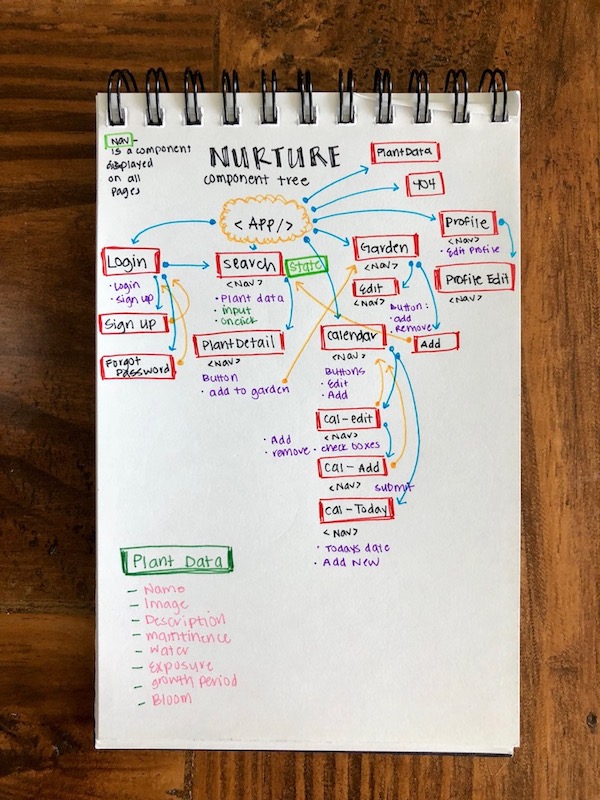 NAV -
is a component
displayed
on all
pages
NURTURE
component tree
PlantData
404
<APP/>
Profile
<NAV>
• Edit Profile
Profile Edit
<NAV>
Garden
<NAV>
Edit
<NAV>
Button:
- add
- Remove
Add
Login
• Login
• sign up
Sign up
Forgot
Password
search
State
<NAV>
• Plant data
• input
• onclick
PlantDetail
<NAV>
Button
• add to garden
Calendar
<NAV>
Buttons
• Edit
• Add
Cal-edit
<NAV>
• Add
• remove • check boxes
Cal-Add
<NAV> submit
Cal-Today
<NAV>
• Todays date
• Add New
Plant Data
- Name
- Image
- Description
- maintinence
- water
- Exposure
- growth period
- Bloom